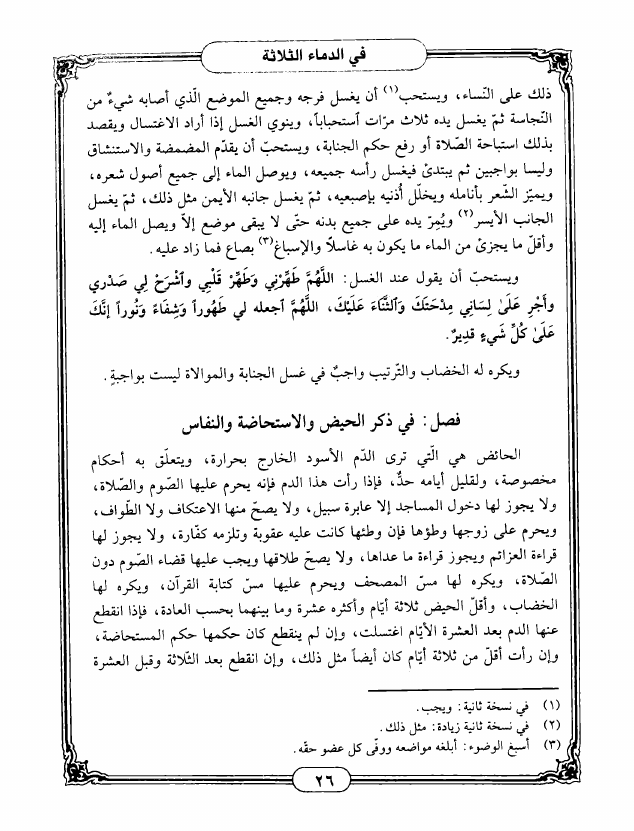 في الدماء الثلاثة
ذلك على النّساء، ويستحب(١) أن يغسل فرجه وجميع الموضع الّذي أصابه شيءٌ من
النّجاسة ثمّ يغسل يده ثلاث مرّات استحباباً، وينوي الغسل إذا أراد الاغتسال ويقصد
بذلك استباحة الصّلاة أو رفع حكم الجنابة، ويستحبّ أن يقدّم المضمضة والاستنشاق
وليسا بواجبين ثم يبتدئ فيغسل رأسه جميعه، ويوصل الماء إلى جميع أصول شعره،
ويميّز الشّعر بأنامله ويخلّل أُذنيه بإصبعيه، ثمّ يغسل جانبه الأيمن مثل ذلك، ثمّ يغسل
الجانب الأيسر(٢) ويُمِرّ يده على جميع بدنه حتّى لا يبقى موضع إلاّ ويصل الماء إليه
وأقلّ ما يجزئ من الماء ما يكون به غاسلاً والإسباغ(٣) بصاع فما زاد عليه.
ويستحبّ أن يقول عند الغسل: اللَّهُمَّ طَهِّرْنِي وَطَهِّرْ قَلْبِي وَاشْرَحْ لِي صَدْرِي
وأَجْرِ عَلَىٰ لِسَانِي مِدْحَتَكَ وَالثَّنَاءَ عَلَيْكَ، اللَّهُمَّ اجعله لي طَهُوراً وَشِفَاءً وَنُوراً إنَّكَ
عَلَىٰ كُلِّ شَيءٍ قدِيرٌ.
ويكره له الخضاب والتّرتيب واجبٌ في غسل الجنابة والموالاة ليست بواجبةٍ.
فصل: في ذكر الحيض والاستحاضة والنفاس
الحائض هي الّتي ترى الدّم الأسود الخارج بحرارة، ويتعلّق به أحكام
مخصوصة، ولقليل أيامه حدٌّ، فإذا رأت هذا الدم فإنه يحرم عليها الصّوم والصّلاة،
ولا يجوز لها دخول المساجد إلا عابرة سبيل، ولا يصحّ منها الاعتكاف ولا الطّواف،
ويحرم على زوجها وطؤها فإن وطئها كانت عليه عقوبة وتلزمه كفّارة، ولا يجوز لها
قراءة العزائم ويجوز قراءة ما عداها، ولا يصحّ طلاقها ويجب عليها قضاء الصّوم دون
الصّلاة، ويكره لها مسّ المصحف ويحرم عليها مسّ كتابة القرآن، ويكره لها
الخضاب، وأقلّ الحيض ثلاثة أيّام وأكثره عشرة وما بينهما بحسب العادة، فإذا انقطع
عنها الدم بعد العشرة الأيّام اغتسلت، وإن لم ينقطع كان حكمها حكم المستحاضة،
وإن رأت أقلّ من ثلاثة أيّام كان أيضاً مثل ذلك، وإن انقطع بعد الثّلاثة وقبل العشرة
(١) في نسخة ثانية: ويجب.
(٢) في نسخة ثانية زيادة: مثل ذلك.
(٣) أسبغ الوضوء: أبلغه مواضعه ووفّى كل عضو حقّه.
٢٦